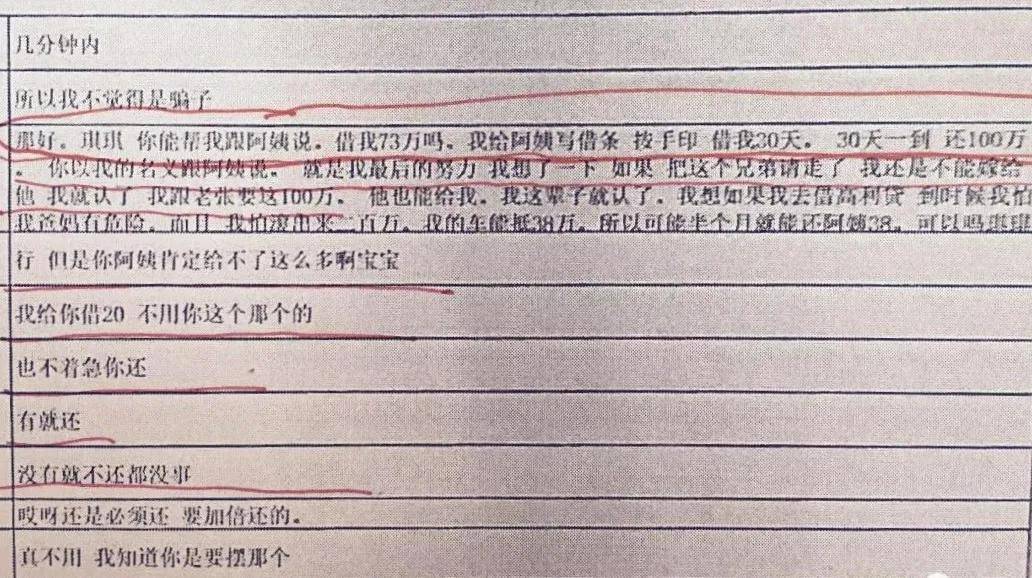 几分钟内
所以我不觉得是骗子
那好。琪琪 你能帮我跟阿姨说。借我73万吗。我给阿姨写借条 按手印 借我30天。 30天一到 还100万
。 你以我的名义跟阿姨说。 就是我最后的努力 我想了一下 如果 把这个兄弟请走了 我还是不能嫁给
他 我就认了 我跟老张要这100万。 他也能给我。我这辈子就认了。我想如果我去借高利贷 到时候我怕
我爸妈有危险。而且 我怕滚出来二百万。我的车能抵38万。所以可能半个月就能还阿姨38。可以吗琪琪
行 但是你阿姨肯定给不了这么多啊宝宝
我给你借20 不用你这个那个的
也不着急你还
有就还
没有就不还都没事
哎呀还是必须还 要加倍还的。
真不用 我知道你是要摆那个